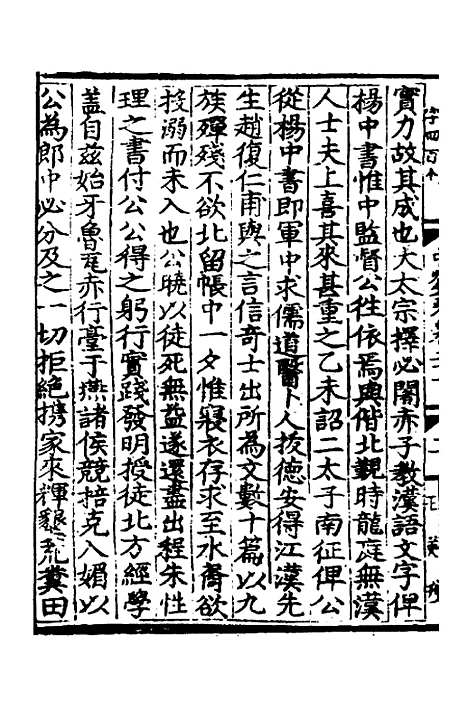 實力故其成也大太宗擇必闍赤子教漢語文字俾
楊中書惟中監督公徃依焉與偕北覲時龍庭無漢
人士夫上喜其來甚重之乙未詔二太子南征俾公
從楊中書即軍中求儒道醫卜人拔德安得江漢先
生趙復仁甫與之言信奇士出所為文數十篇以九
族殫殘不欲北留帳中一夕惟寢衣存求至水裔欲
投溺而未入也公曉以徒死無益遂還盡出程朱性
理之書付公公得之躬行實踐發明授徒北方經學
蓋自兹始牙魯瓦赤行臺于燕諸侯競掊克入媚以
公為郎中必分及之一切拒絶携家來輝墾荒糞田